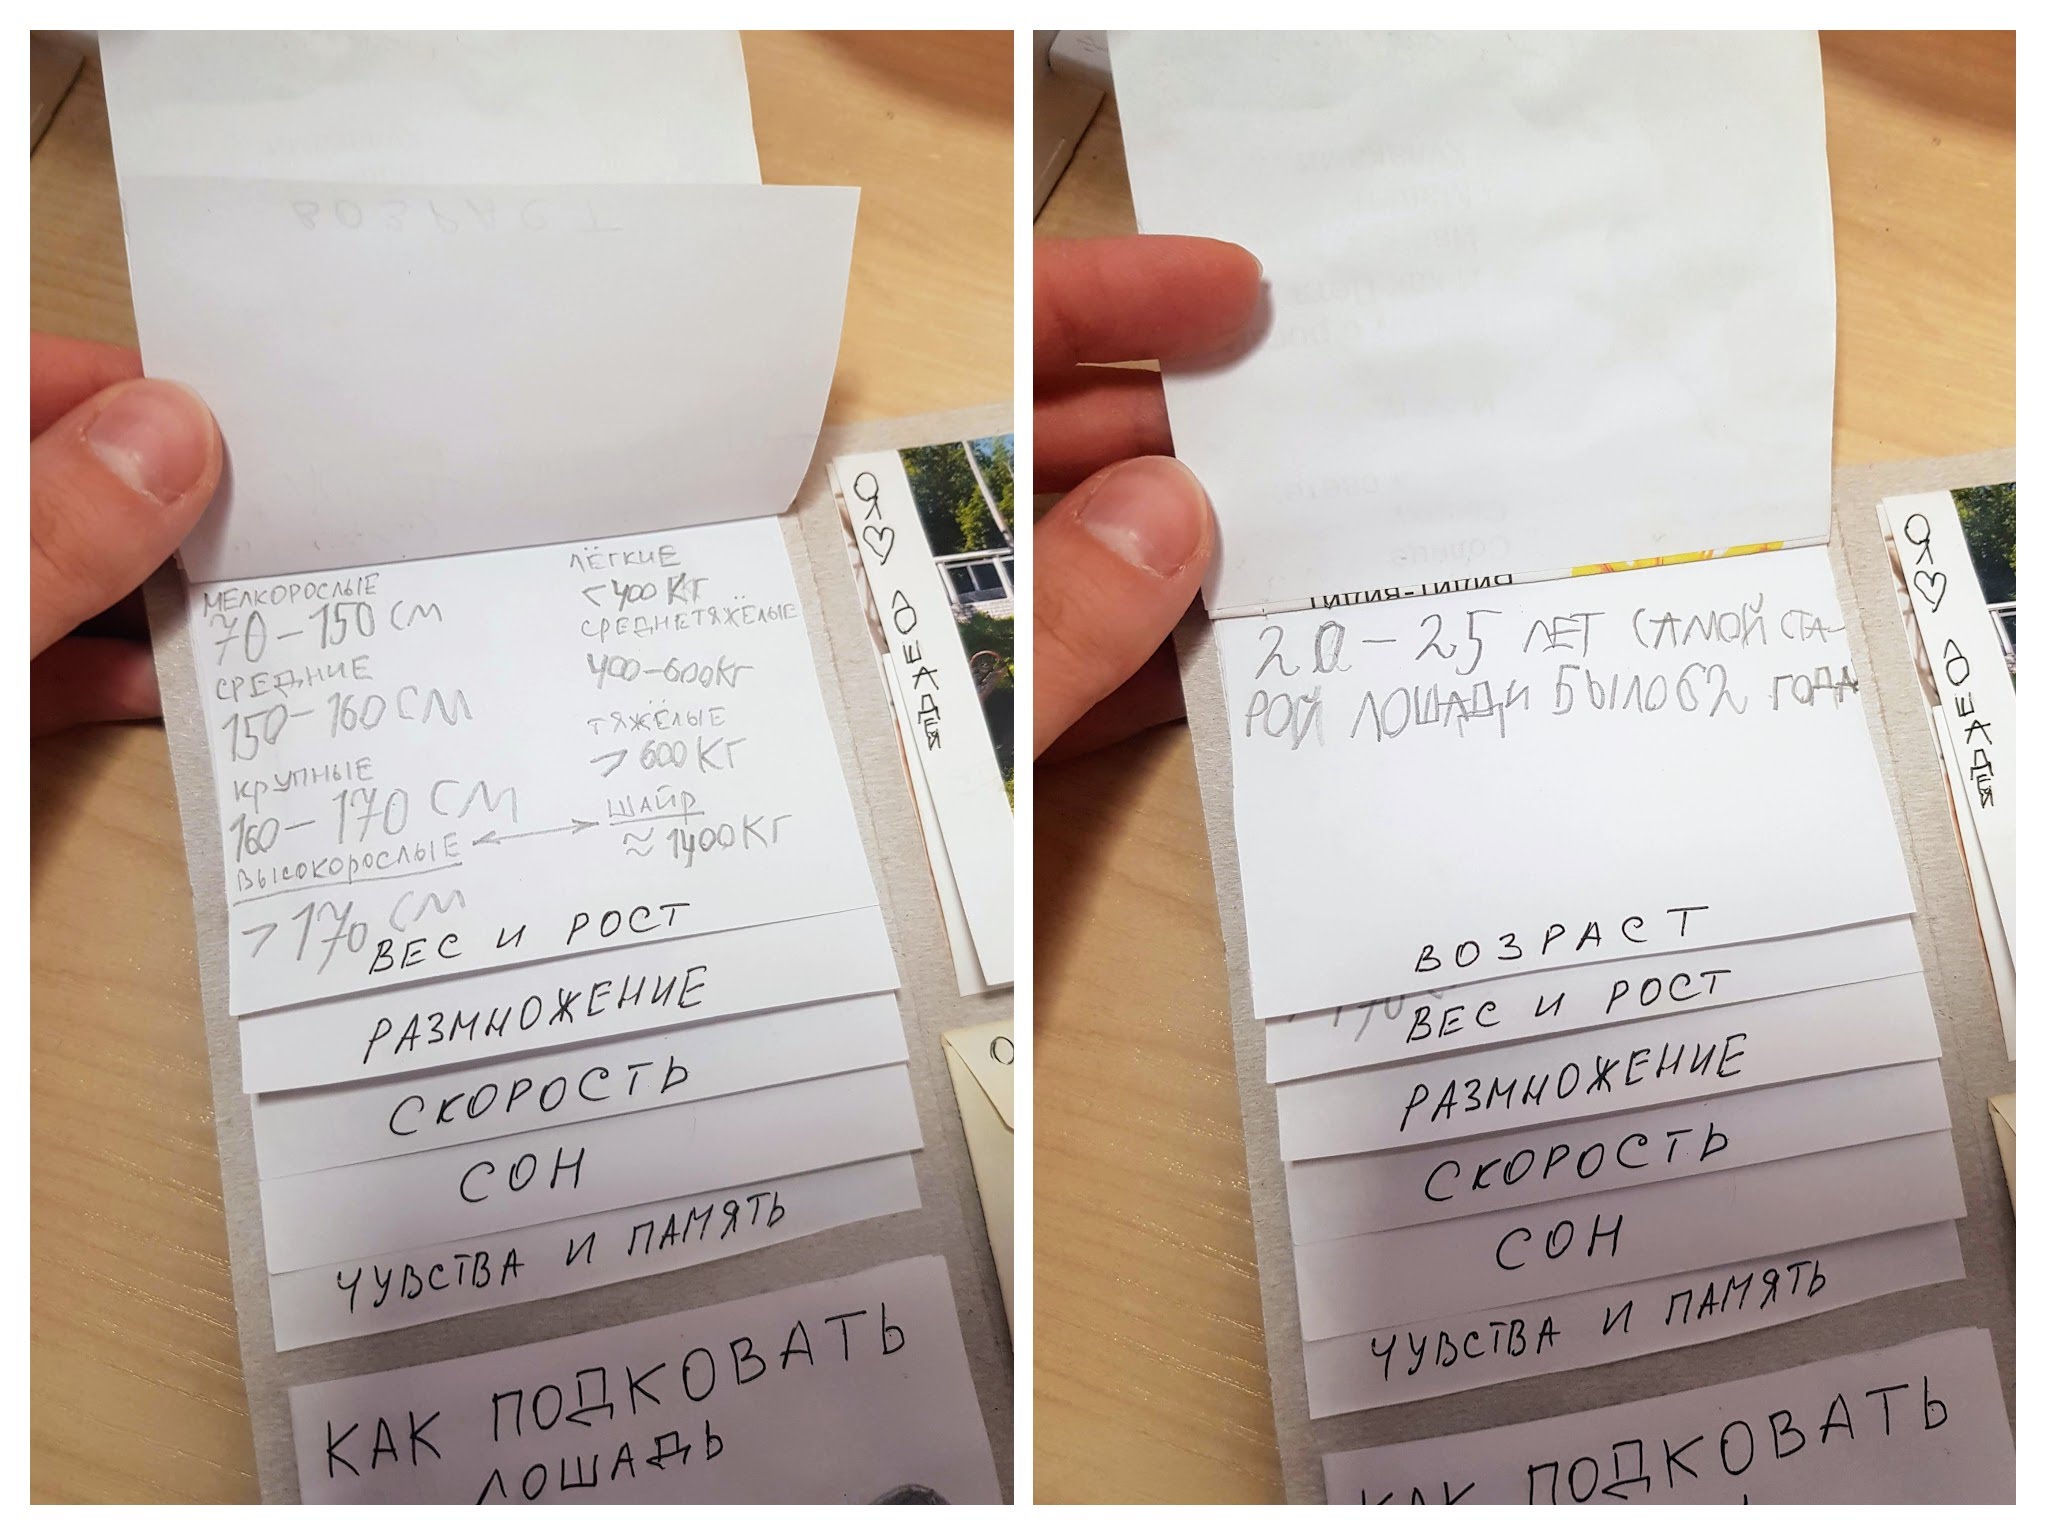 ВОЗРАСТ
МЕЛКОРОСЛЫЕ
70-150 СМ
СРЕДНИЕ
150-160 СМ
КРУПНЫЕ
160-170 СМ
ВЫСОКОРОСЛЫЕ
>170 СМ
ЛЁГКИЕ
<400 КГ
СРЕДНЕТЯЖЁЛЫЕ
400-600КГ
ТЯЖЁЛЫЕ
>600 КГ
ШАЙР
≈ 1400 КГ
ВЕС И РОСТ
РАЗМНОЖЕНИЕ
СКОРОСТЬ
СОН
ЧУВСТВА И ПАМЯТЬ
КАК ПОДКОВАТЬ
ЛОШАДЬ
Я ♡ ЛОШАДЕЙ
20-25 ЛЕТ САМОЙ СТА-
РОЙ ЛОШАДИ БЫЛО 62 ГОДА
ВОЗРАСТ
ВЕС И РОСТ
РАЗМНОЖЕНИЕ
СКОРОСТЬ
СОН
ЧУВСТВА И ПАМЯТЬ
КАК ПОДКОВАТЬ
Я ♡ ЛОШАДЕЙ